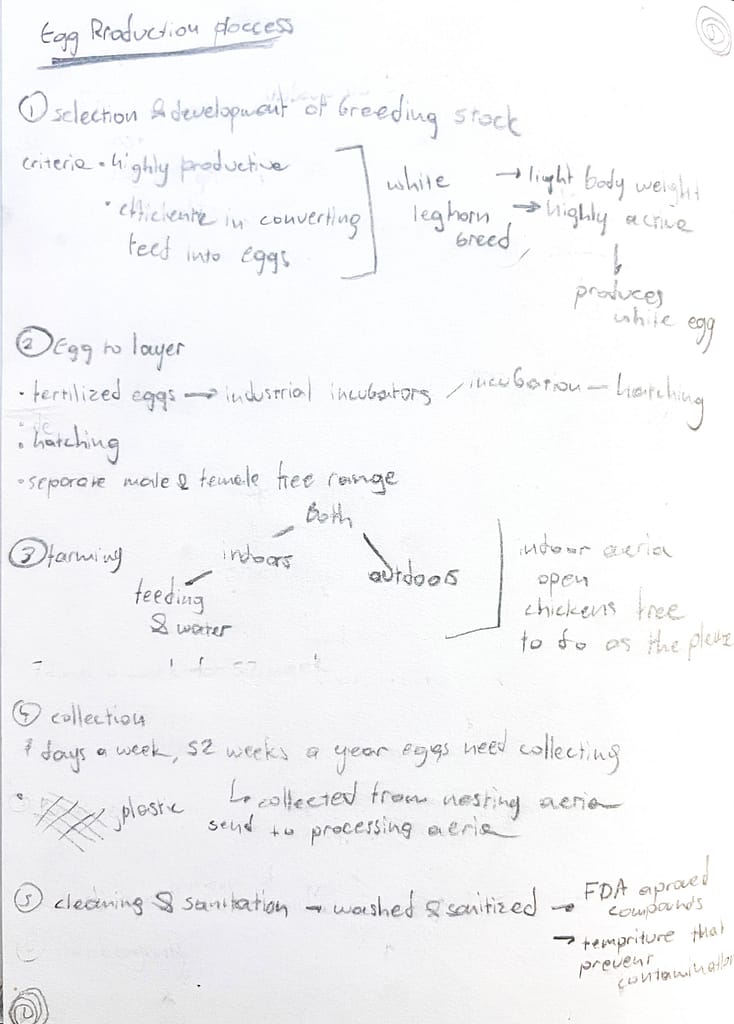 Egg Production proccess
①
① selection & development of breeding stock
criteria • highly productive
• efficiente in converting
feed into eggs
white
leghorn
breed
→ light body weight
→ highly active
↓
produces
white egg
② Egg to layer
• fertilized eggs → industrial incubators / incubation - hatching
• hatching
• separate male & female free range
Both
③ farming
indoors
outdoors
feeding
& water
indoor aeria
open
chickens free
to do as the pleaze
④ collection
7 days a week, 52 weeks a year eggs need collecting
• plastic
↳ collected from nesting aeria
send to processing aeria
⑤ cleaning & sanitation → washed & sanitized → FDA aproved
compounds
→ tempriture that
prevent
contamination
①